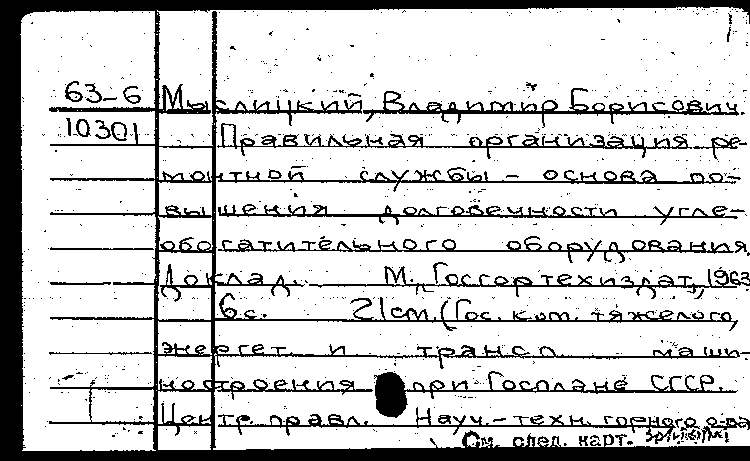 63-6 Мыслицкий, Владимир Борисович.
10301 Правильная организация ре-
монтной службы - основа по-
вышения долговечности угле-
обогатительного оборудования.
Доклад. М., Госгортехиздат, 1963
6с. 21см. (Гос. ком. тяжелого,
энергет. и трансп. маши-
ностроения при Госплане СССР.
Центр правл. Науч.-техн. горного о-ва
См. след. карт.